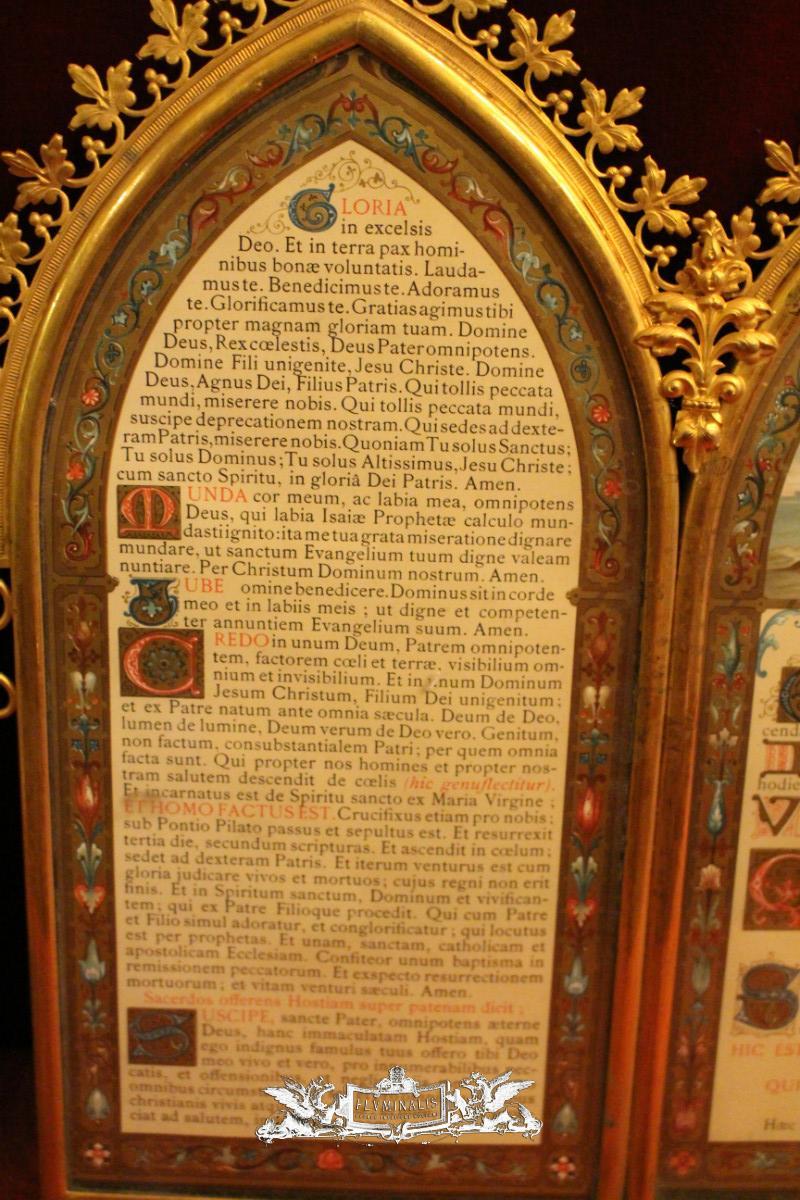 GLORIA
in excelsis
Deo. Et in terra pax homi-
nibus bonæ voluntatis. Lauda-
mus te. Benedicimus te. Adoramus
te. Glorificamus te. Gratias agimus tibi
propter magnam gloriam tuam. Domine
Deus, Rex cœlestis, Deus Pater omnipotens.
Domine Fili unigenite, Jesu Christe. Domine
Deus, Agnus Dei, Filius Patris. Qui tollis peccata
mundi, miserere nobis. Qui tollis peccata mundi,
suscipe deprecationem nostram. Qui sedes ad dexte-
ram Patris, miserere nobis. Quoniam Tu solus Sanctus;
Tu solus Dominus; Tu solus Altissimus, Jesu Christe;
cum sancto Spiritu, in gloriâ Dei Patris. Amen.
MUNDA cor meum, ac labia mea, omnipotens
Deus, qui labia Isaiæ Prophetæ calculo mun-
dasti ignito: ita me tua grata miseratione dignare
mundare, ut sanctum Evangelium tuum digne valeam
nuntiare. Per Christum Dominum nostrum. Amen.
JUBE omine benedicere. Dominus sit in corde
meo et in labiis meis; ut digne et competen-
ter annuntiem Evangelium suum. Amen.
CREDO in unum Deum, Patrem omnipoten-
tem, factorem cœli et terræ, visibilium om-
nium et invisibilium. Et in num Dominum
Jesum Christum, Filium Dei unigenitum;
et ex Patre natum ante omnia sæcula. Deum de Deo,
lumen de lumine, Deum verum de Deo vero. Genitum,
non factum, consubstantialem Patri; per quem omnia
facta sunt. Qui propter nos homines et propter nos-
tram salutem descendit de cœlis (hic genuflectitur).
Et incarnatus est de Spiritu sancto ex Maria Virgine;
ET HOMO FACTUS EST. Crucifixus etiam pro nobis;
sub Pontio Pilato passus et sepultus est. Et resurrexit
tertia die, secundum scripturas. Et ascendit in cœlum;
sedet ad dexteram Patris. Et iterum venturus est cum
gloria judicare vivos et mortuos; cujus regni non erit
finis. Et in Spiritum sanctum, Dominum et vivifican-
tem; qui ex Patre Filioque procedit. Qui cum Patre
et Filio simul adoratur, et conglorificatur; qui locutus
est per prophetas. Et unam, sanctam, catholicam et
apostolicam Ecclesiam. Confiteor unum baptisma in
remissionem peccatorum. Et exspecto resurrectionem
mortuorum; et vitam venturi sæculi. Amen.
Sacerdos offerens Hostiam super patenam dicit;
SUSCIPE, sancte Pater, omnipotens æterne
Deus, hanc immaculatam Hostiam, quam
ego indignus famulus tuus offero tibi Deo
meo vivo et vero, pro innumerabilibus pec-
catis, et offensionibus
omnibus circums
christianis vivis
ciat ad salutem,
FLVMINALIS
cend
hodie
HIC EST
QUI
Hæc